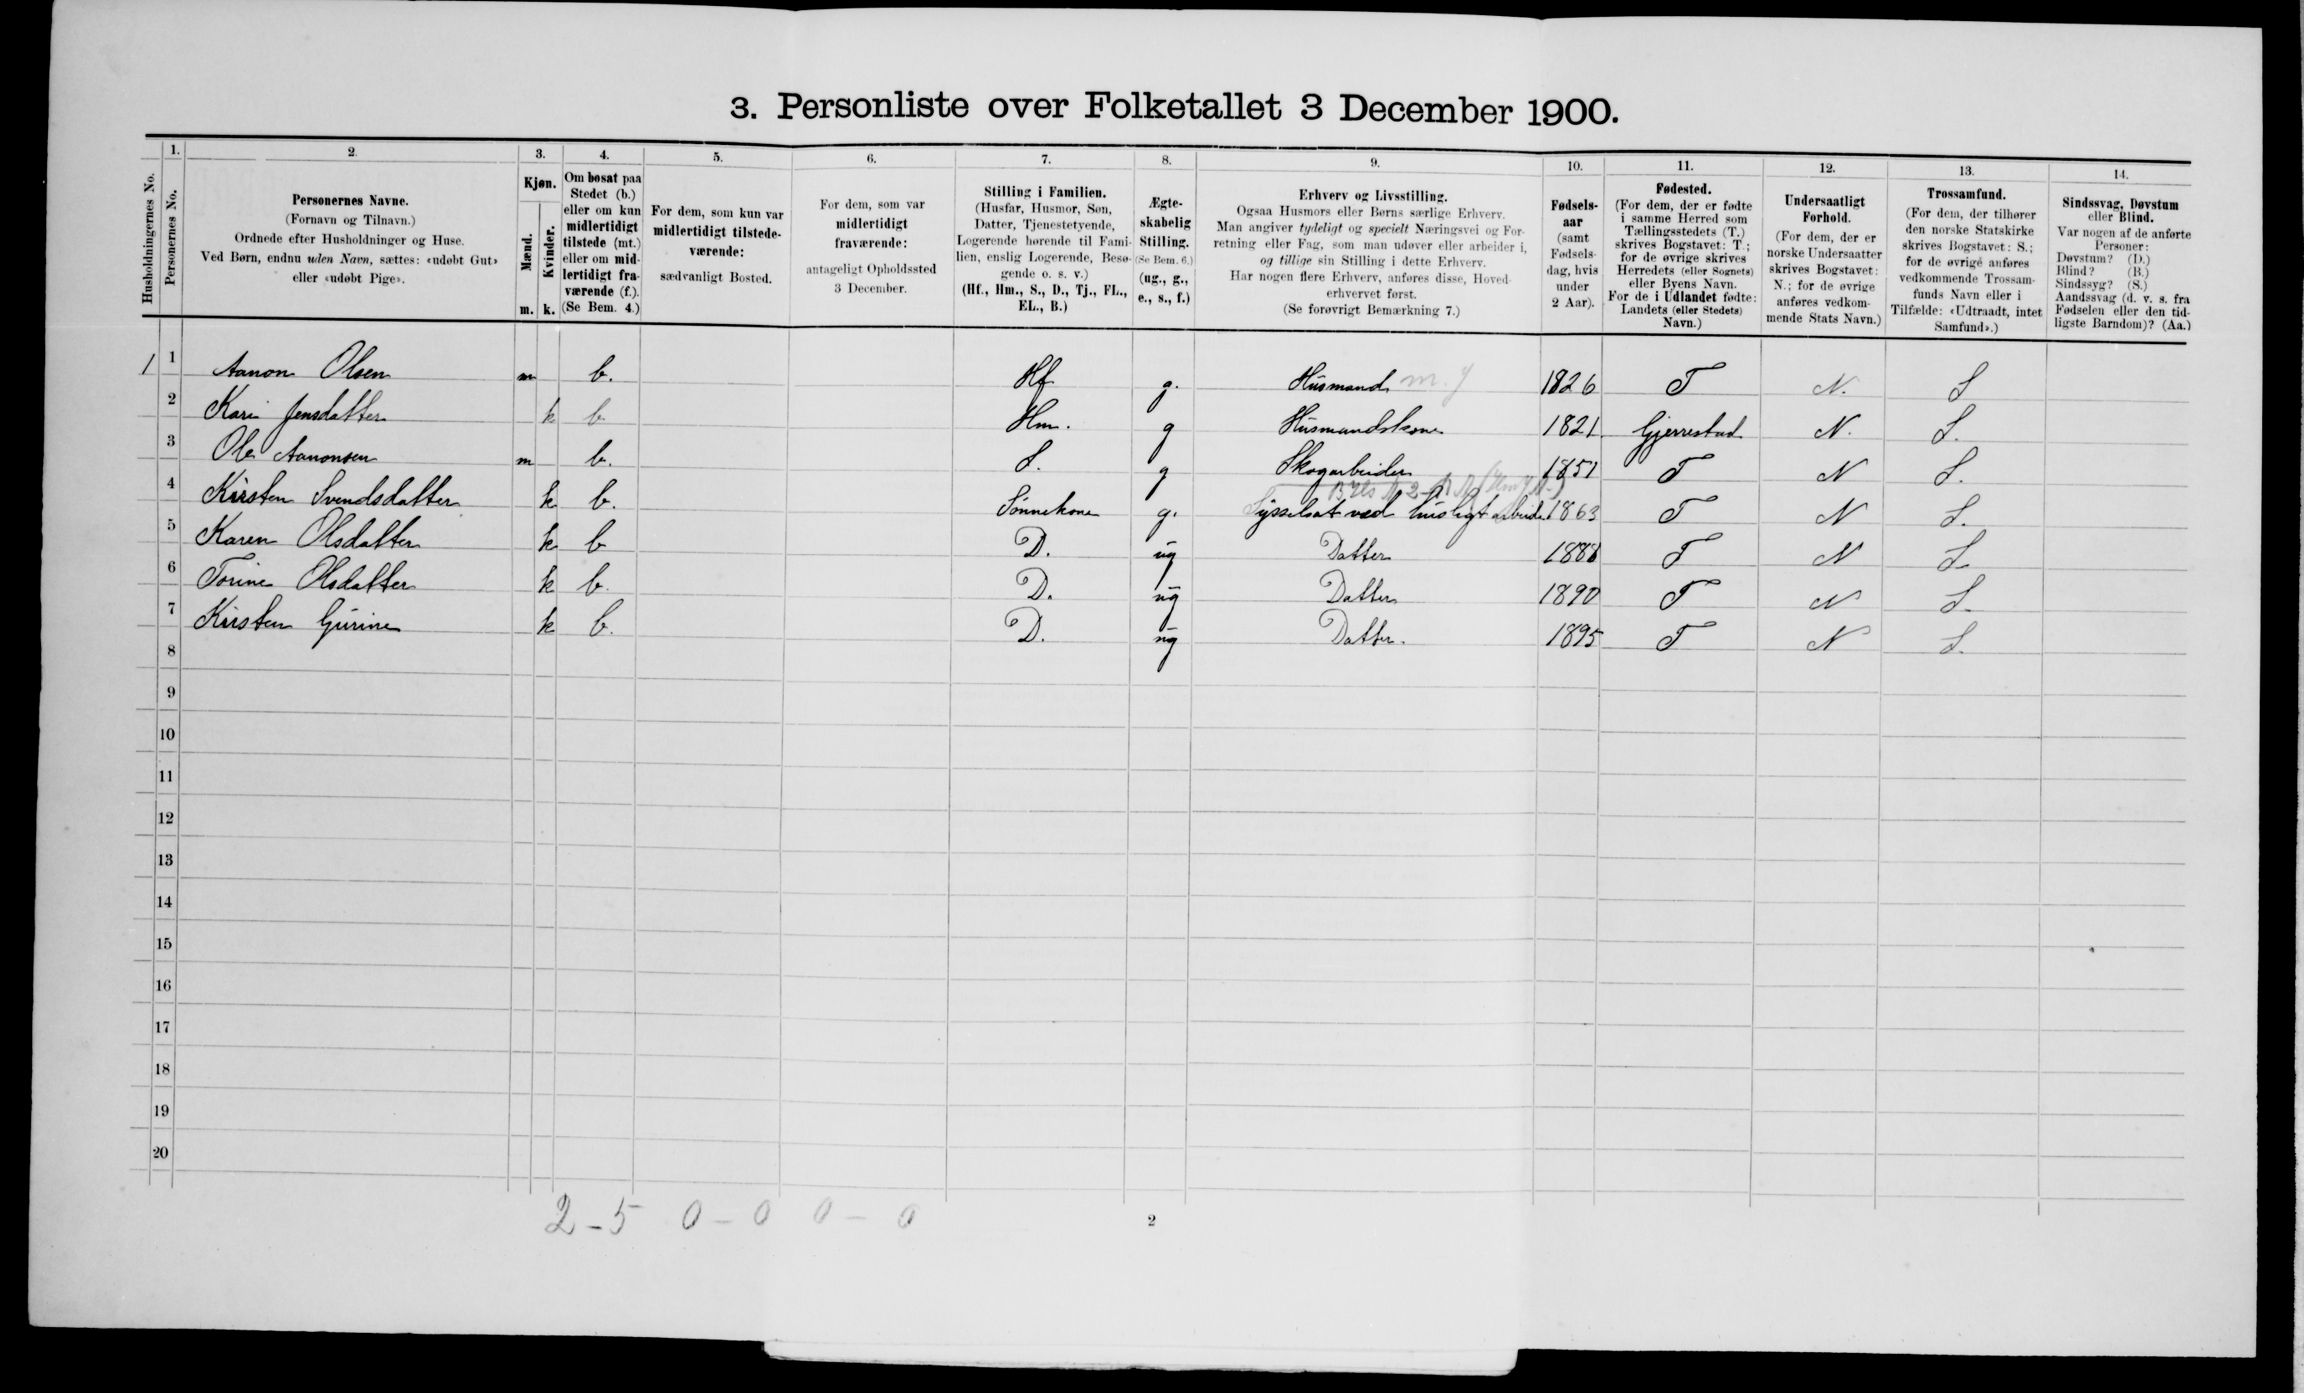 3. Personliste over Folketallet 3 December 1900.
Husholdningernes No.
1.
Personernes No.
2.
Personernes Navne.
(Fornavn og Tilnavn.)
Ordnede efter Husholdninger og Huse.
Ved Børn, endnu uden Navn, sættes: «udøbt Gut»
eller «udøbt Pige».
3.
Kjøn.
Mænd.
Kvinder.
m. k.
4.
Om bosat paa
Stedet (b.)
eller om kun
midlertidigt
tilstede (mt.)
eller om mid-
lertidigt fra-
værende (f.).
(Se Bem. 4.)
5.
For dem, som kun var
midlertidigt tilstede-
værende:
sædvanligt Bosted.
6.
For dem, som var
midlertidigt
fraværende:
antageligt Opholdssted
3 December.
7.
Stilling i Familien.
(Husfar, Husmor, Søn,
Datter, Tjenestetyende,
Logerende hørende til Fami-
lien, enslig Logerende, Besø-
gende o. s. v.)
(Hf., Hm., S., D., Tj., FL.,
EL., B.)
8.
Ægte-
skabelig
Stilling.
(Se Bem. 6.)
(ug., g.,
e., s., f.)
9.
Erhverv og Livsstilling.
Ogsaa Husmors eller Børns særlige Erhverv.
Man angiver tydeligt og specielt Næringsvei og For-
retning eller Fag, som man udøver eller arbeider i,
og tillige sin Stilling i dette Erhverv.
Har nogen flere Erhverv, anføres disse, Hoved-
erhvervet først.
(Se forøvrigt Bemærkning 7.)
10.
Fødsels-
aar
(samt
Fødsels-
dag, hvis
under
2 Aar).
11.
Fødested.
(For dem, der er fødte
i samme Herred som
Tællingsstedets (T.)
skrives Bogstavet: T.;
for de øvrige skrives
Herredets (eller Sognets)
eller Byens Navn.
For de i Udlandet fødte:
Landets (eller Stedets)
Navn.)
12.
Undersaatligt
Forhold.
(For dem, der er
norske Undersaatter
skrives Bogstavet:
N.; for de øvrige
anføres vedkom-
mende Stats Navn.)
13.
Trossamfund.
(For dem, der tilhører
den norske Statskirke
skrives Bogstavet: S.;
for de øvrige anføres
vedkommende Trossam-
funds Navn eller i
Tilfælde: «Udtraadt, intet
Samfund».)
14.
Sindssvag, Døvstum
eller Blind.
Var nogen af de anførte
Personer:
Døvstum? (D.)
Blind? (B.)
Sindssyg? (S.)
Aandssvag (d. v. s. fra
Fødselen eller den tid-
ligste Barndom)? (Aa.)
1 1 Aanon Olsen m b. Hf g. Husmand m. J 1826 T N. S
2 Kari Jensdatter k b Hm. g Husmandskone 1821. Gjerrestad N. S.
3 Ole Aanonsen m b. S. g Skogarbeider 1851 T N S.
4 Kirsten Svendsdatter k b. Sønnekone g. Sysselsat ved husligt arbeide 1863 T N S.
5 Karen Olsdatter k b D. ug Datter 1888 T N S.
6 Torine Olsdatter k b. D. ug Datter 1890 T N S.
7 Kirsten Gurine k b. D. ug Datter. 1895 T N S.
8
9
10
11
12
13
14
15
16
17
18
19
20
2-5 0-0 0-0
2